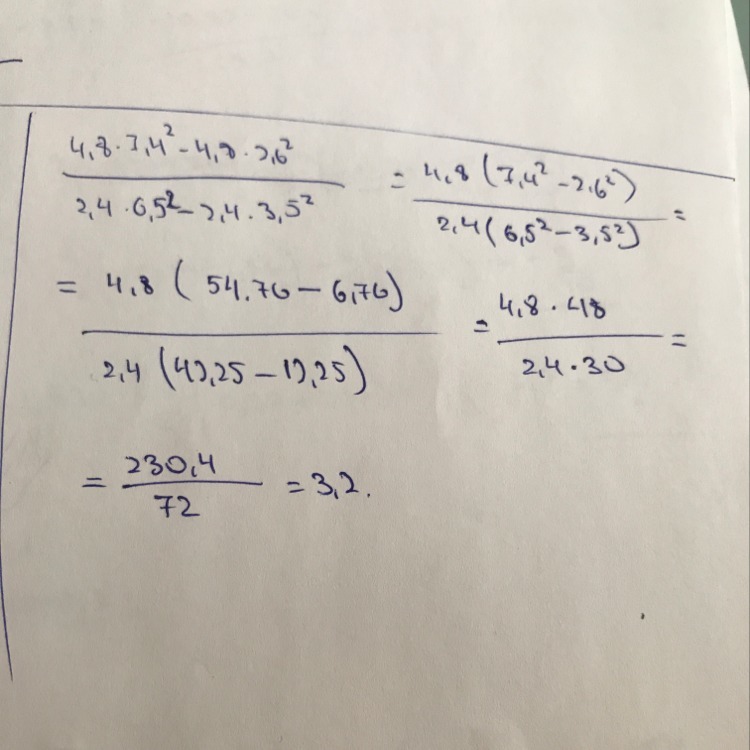 4,8 · 7,4² - 4,8 · 2,6² / 2,4 · 6,5² - 2,4 · 3,5² = 4,8 (7,4² - 2,6²) / 2,4 (6,5² - 3,5²) =
= 4,8 (54,76 - 6,76) / 2,4 (42,25 - 12,25) = 4,8 · 48 / 2,4 · 30 =
= 230,4 / 72 = 3,2.